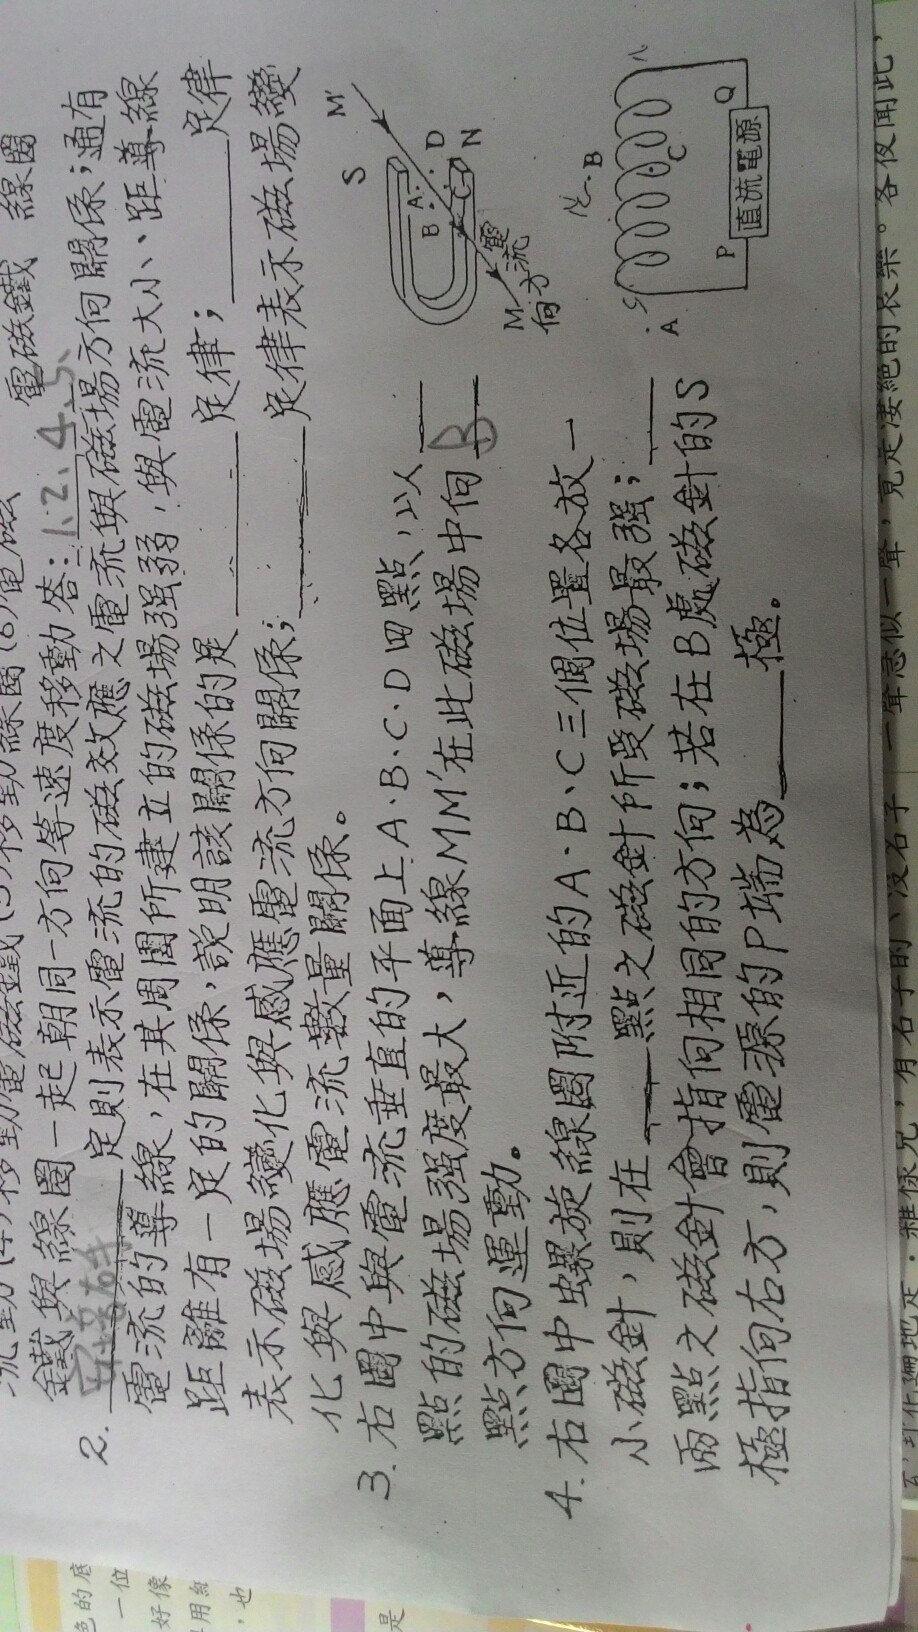 電磁鐵 線圈
鐵與線圈一起朝同一方向等速度移動答:1.2.4.5、
2. 安培右手 定則表示電流的磁效應之電流與磁場方向關係;通有
電流的導線,在其周圍所建立的磁場強弱,與電流大小、距導線
距離有一定的關係,說明該關係的是______定律;______定律
表示磁場變化與感應電流方向關係;______定律表示磁場變
化與感應電流數量關係。
3. 右圖中與電流垂直的平面上A、B、C、D四點,以___
點的磁場强度最大,導線MM'在此磁場中向 B
點方向運動。
S
M'
A
D
B
C
N
M
電流
方向
4. 右圖中螺旋線圈附近的A、B、C三個位置各放一
小磁針,則在___點之磁針所受磁場最强;___
兩點之磁針會指向相同的方向;若在B處磁針的S
極指向右方,則電源的P端為______極。
B
S
N
A
C
P
直流電源
Q